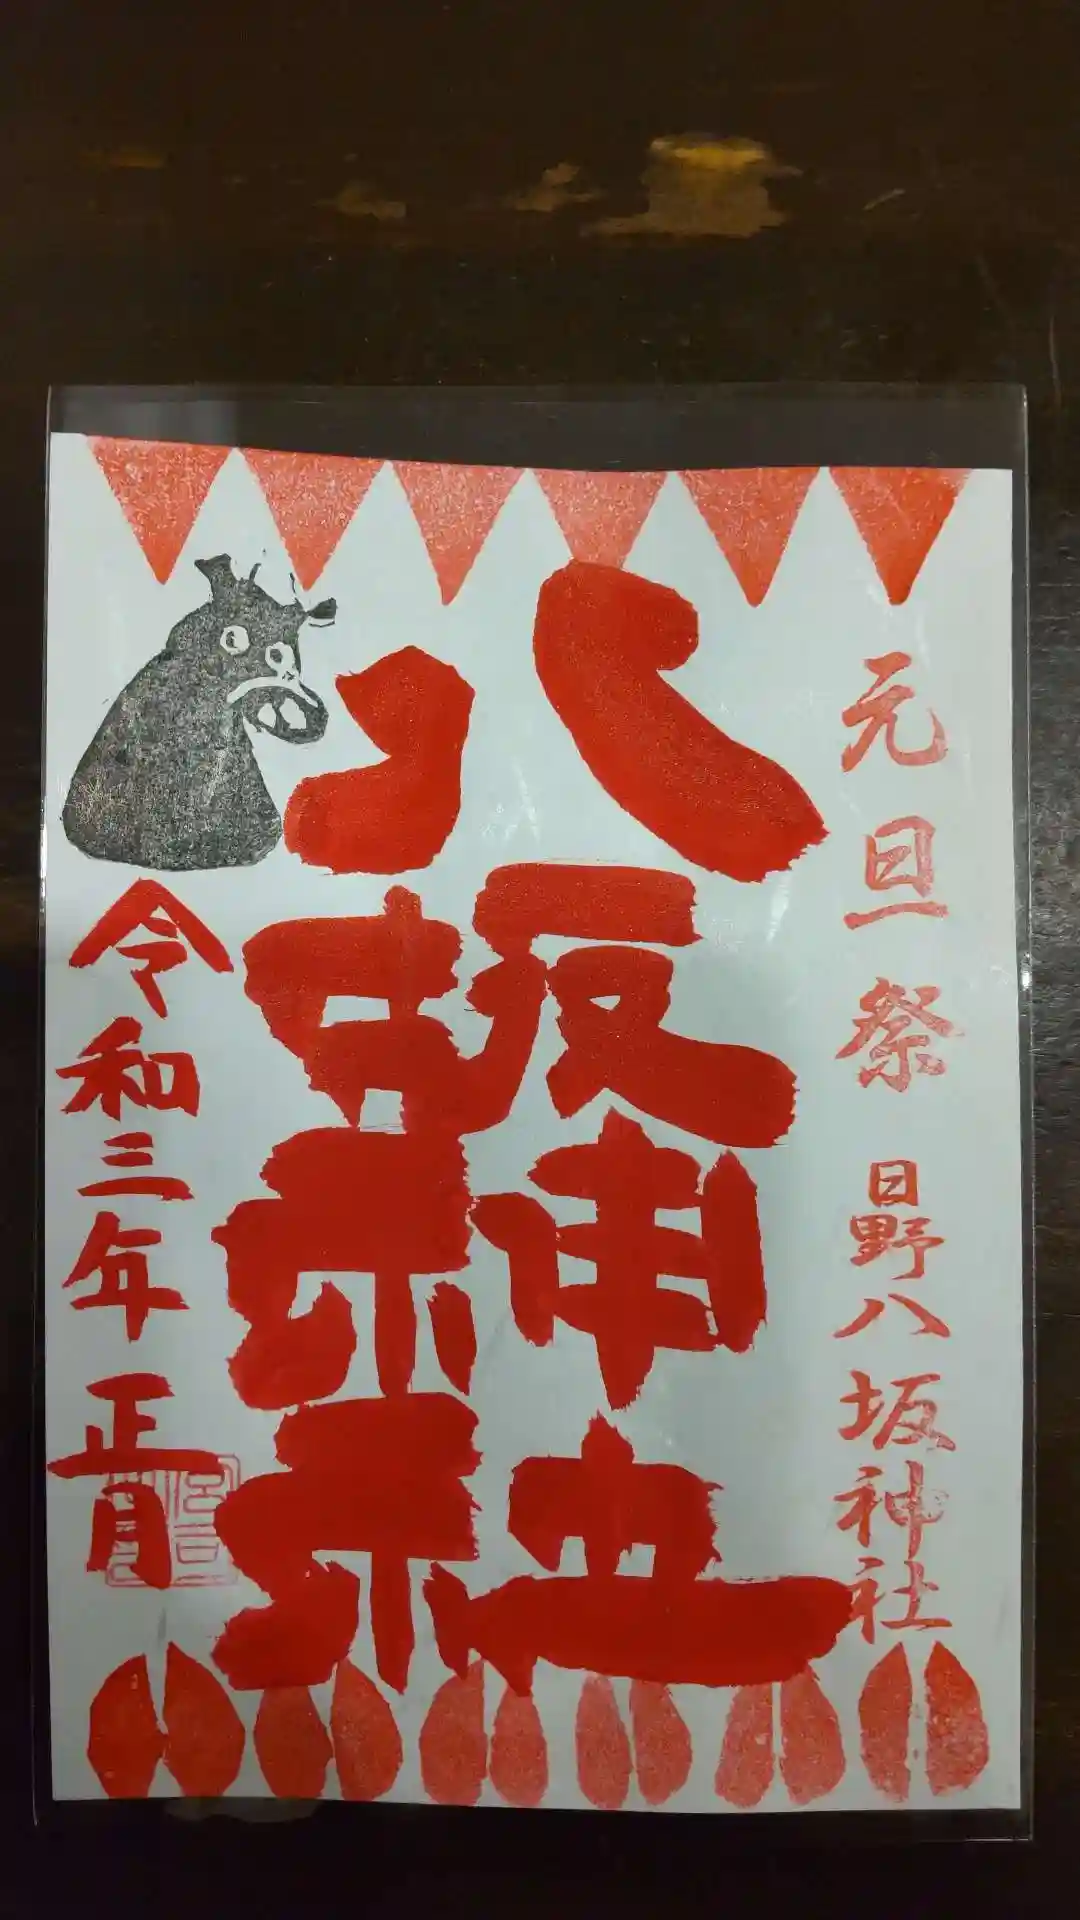 元旦祭 日野八坂神社
八坂神社
令和三年正月